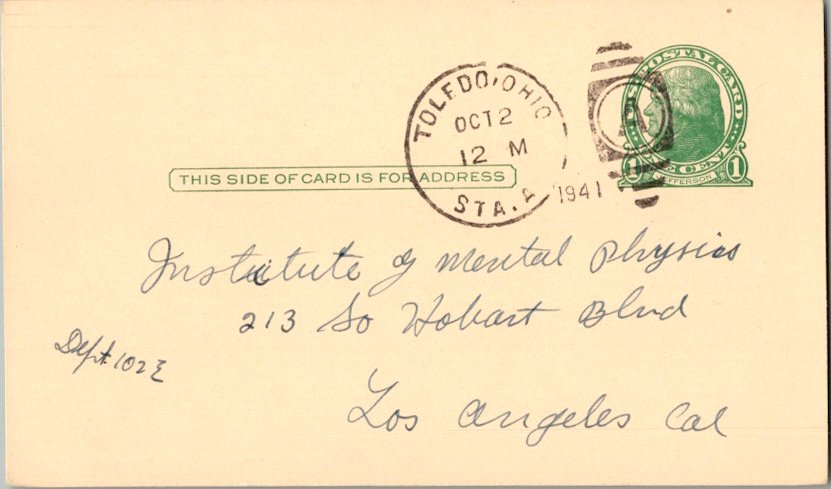 TOLEDO, OHIO
OCT 2
12 M
1941
STA. A
A
POSTAL CARD
1 CENT 1
JEFFERSON
THIS SIDE OF CARD IS FOR ADDRESS
Institute of Mental Physics
213 So Hobart Blvd
Dept. 102 E
Los Angeles Cal